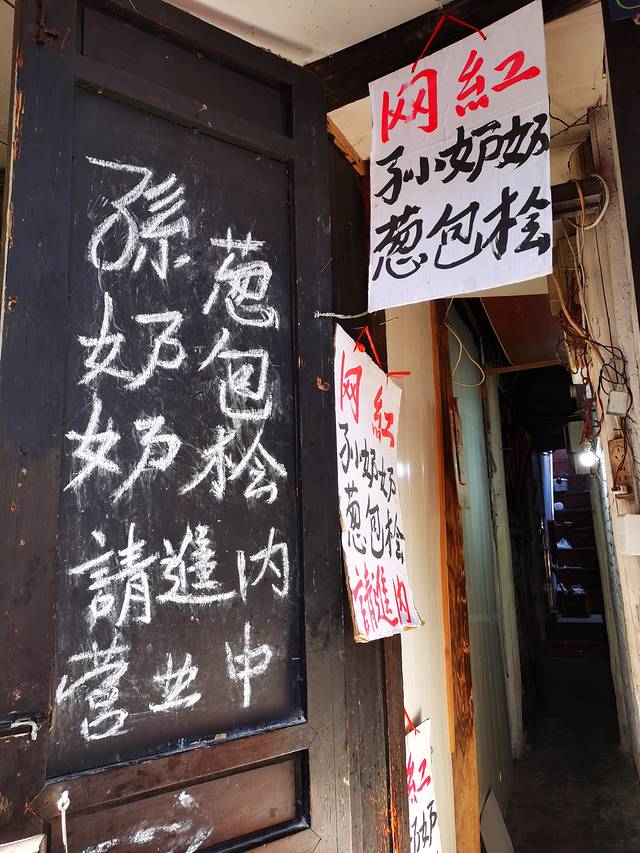 孫奶奶
葱包桧
請進内
营业中
网紅
孙奶奶
葱包桧
网紅
孙奶奶
葱包桧
請進内
紅
奶